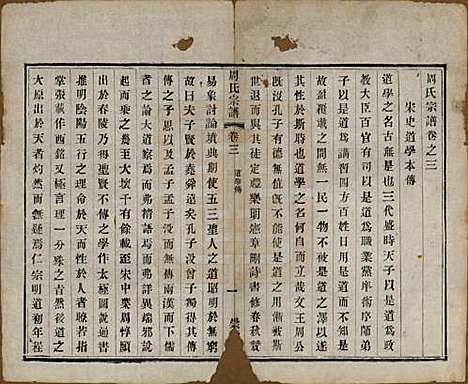 周氏宗譜卷之三
宋史道學本傳
道學之名古無是也三代盛時天子以是道為政
教大臣百官有司以是道為職業黨庠術序師弟
子以是道為講習四方百姓日用是道而不知是
故盈覆載之間無一民一物不被是道之澤以遂
其性於斯時也道學之名何自而立哉文王周公
既沒孔子有德無位既不能使是道之用漸被斯
世退而與其徒定禮樂明憲章刪詩書修春秋讚
周氏宗譜
卷三
道學傳
一
易象討論墳典期使五三聖人之道昭明於無窮
故曰夫子賢於堯舜遠矣孔子沒曾子獨得其傳
傳之子思以及孟子孟子沒而無傳兩漢而下儒
者之論大道察焉而弗精語焉而弗詳異端邪說
起而乘之幾至大壞千有餘載至宋中葉周惇頤
出於舂陵乃得聖賢不傳之學作太極圖說通書
推明陰陽五行之理命於天而性於人者瞭若指
掌張載作西銘又極言理一分殊之旨然後道之
大原出於天者灼然而無疑焉仁宗明道初年程